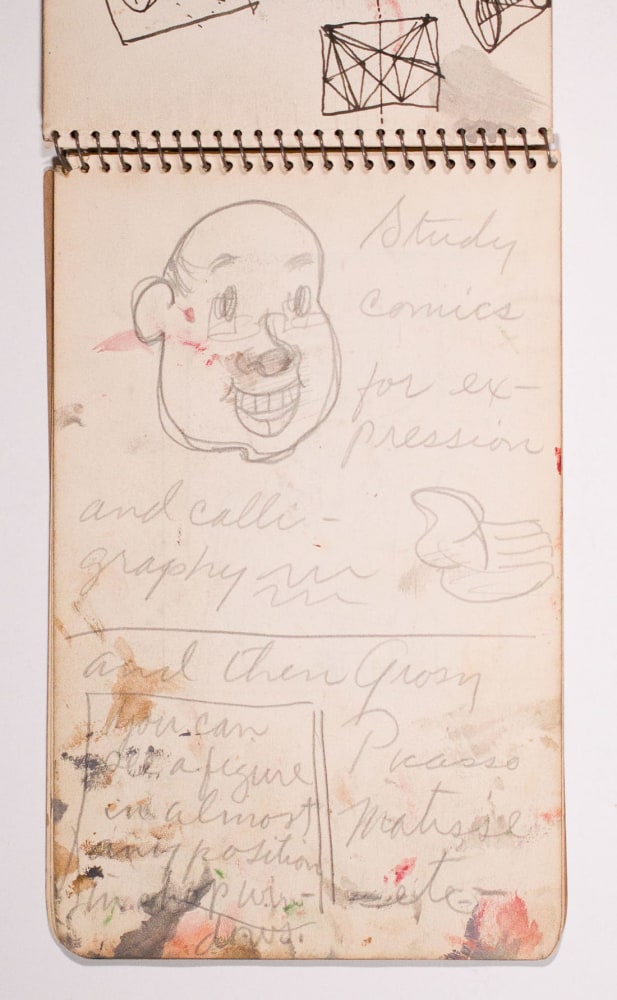 Study
comics
for ex-
pression
and calli-
graphy
and then Grosz
you can
see a figure
in almost
any position
in shop win-
dows.
Picasso
Matisse
- etc -